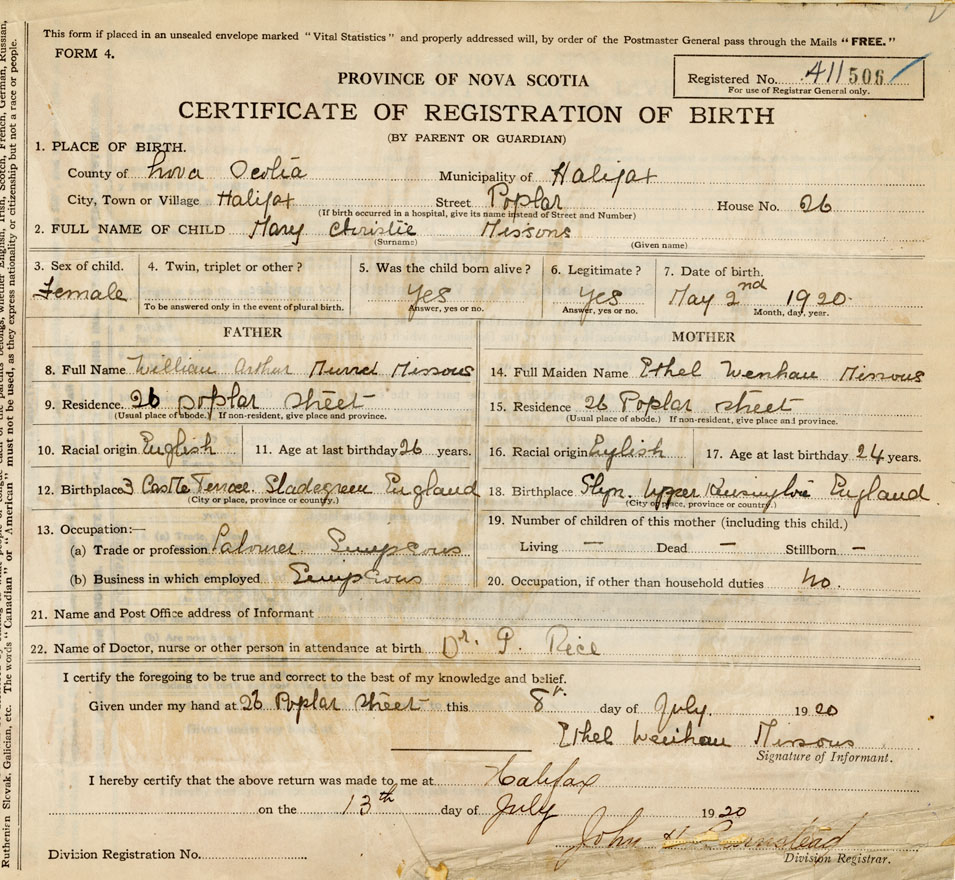 This form if placed in an unsealed envelope marked "Vital Statistics" and properly addressed will, by order of the Postmaster General pass through the Mails "FREE."
FORM 4.
PROVINCE OF NOVA SCOTIA
Registered No. 411506
For use of Registrar General only.
CERTIFICATE OF REGISTRATION OF BIRTH
(BY PARENT OR GUARDIAN)
1. PLACE OF BIRTH.
County of Nova Scotia Municipality of Halifax
City, Town or Village Halifax Street Poplar House No. 26
(If birth occurred in a hospital, give its name instead of Street and Number)
2. FULL NAME OF CHILD Mary Christie Missons
(Surname) (Given name)
3. Sex of child. 4. Twin, triplet or other? 5. Was the child born alive? 6. Legitimate? 7. Date of birth.
Female Yes Yes May 2nd 1920
To be answered only in the event of plural birth. Answer, yes or no. Answer, yes or no. Month, day, year.
FATHER
8. Full Name William Arthur Missons
9. Residence. 26 poplar street
(Usual place of abode.) If non-resident, give place and province.
10. Racial origin English 11. Age at last birthday 26 years.
12. Birthplace 3 Castle Terrace Sladegreen England
(City or place, province or country.)
13. Occupation:—
(a) Trade or profession
(b) Business in which employed
MOTHER
14. Full Maiden Name Ethel Wenham Missons
15. Residence 26 Poplar street
(Usual place of abode.) If non-resident, give place and province.
16. Racial origin English 17. Age at last birthday 24 years.
18. Birthplace Upper England
(City or place, province or country.)
19. Number of children of this mother (including this child.)
Living — Dead — Stillborn —
20. Occupation, if other than household duties No.
21. Name and Post Office address of Informant
22. Name of Doctor, nurse or other person in attendance at birth Dr. P. Rice
I certify the foregoing to be true and correct to the best of my knowledge and belief.
Given under my hand at 26 Poplar Street this 8th day of July 1920
Ethel Wenham Missons
Signature of Informant.
I hereby certify that the above return was made to me at Halifax
on the 13th day of July 1920
John H
Division Registrar.
Division Registration No.
must not be used, as they express nationality or citizenship but not a race or people.
Ruthenian Slovak, Galician, etc. The words "Canadian" or "American"